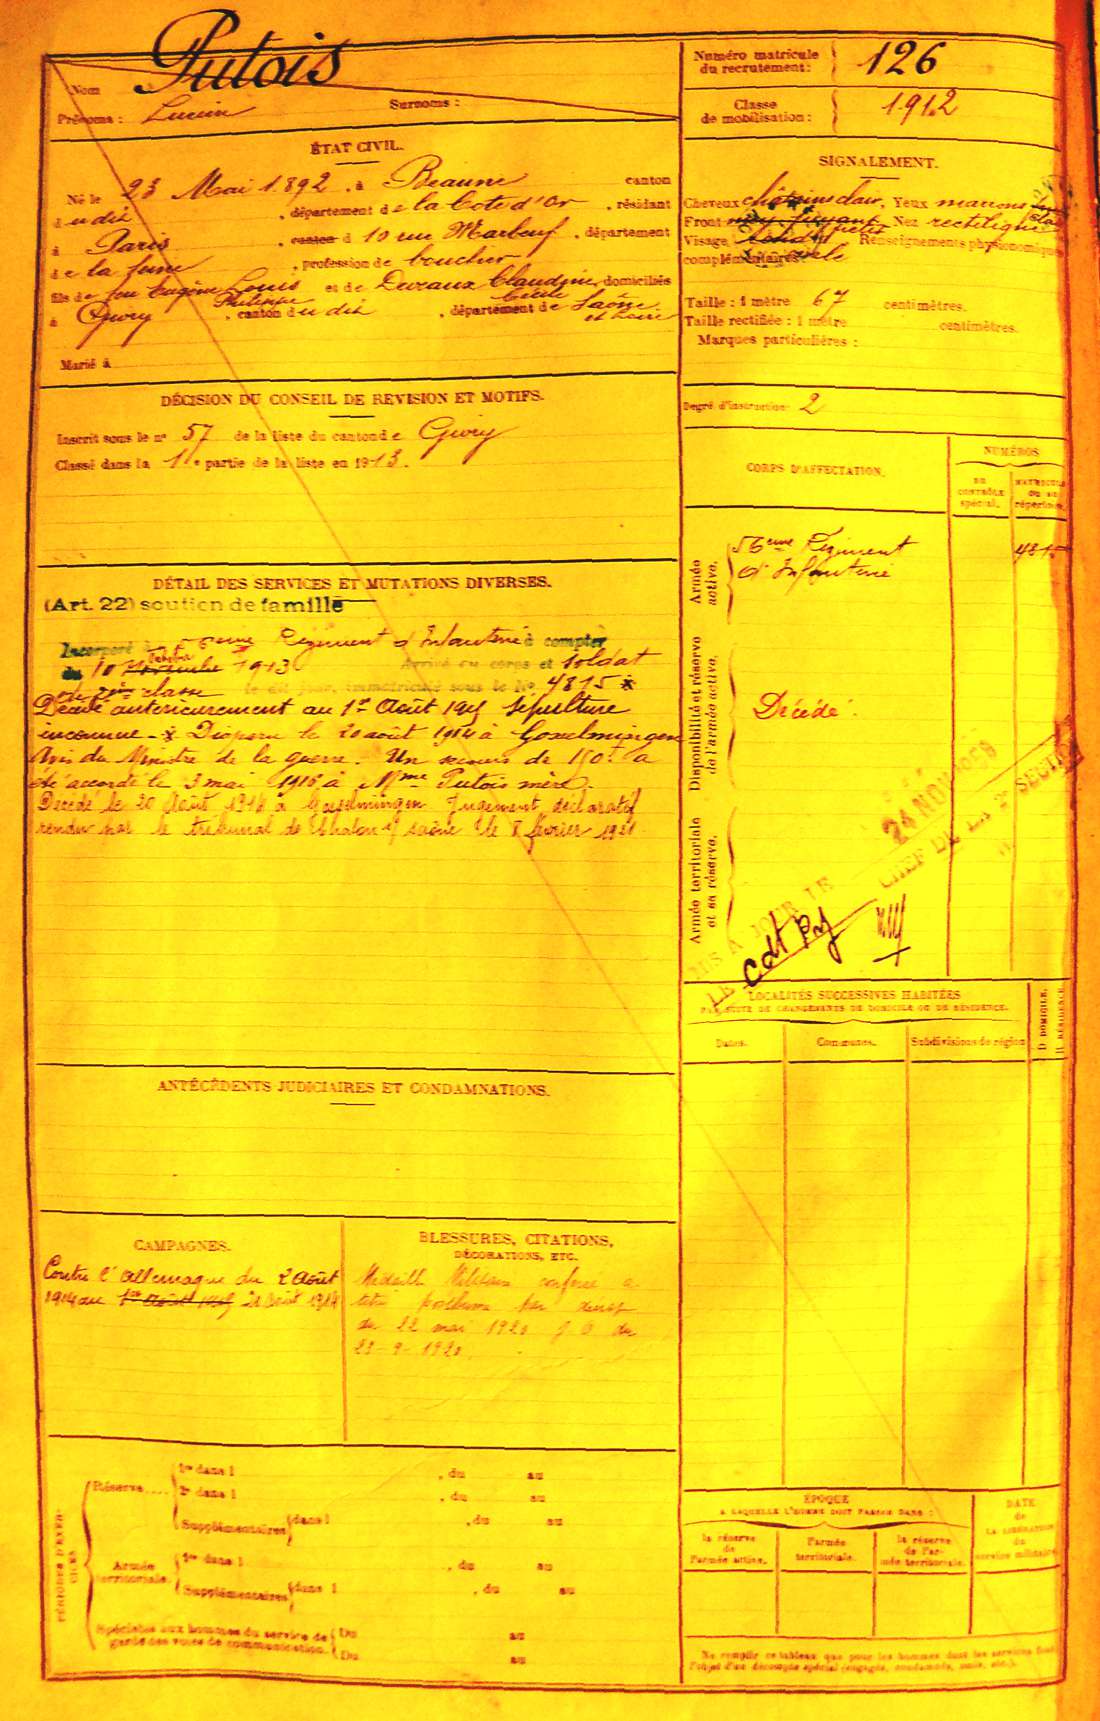 Nom Putois
Prénoms : Lucien Surnoms :
Numéro matricule du recrutement : 126
Classe de mobilisation : 1912
ÉTAT CIVIL.
Né le 23 Mai 1892, à Beaune canton
dudit, département de la Cote d'Or, résidant
à Paris, canton d 10 rue Marbeuf, département
de la Seine, profession de boucher
fils de feu Eugène Louis Philippe et de Devaux Claudine Cécile, domiciliés
à Givry, canton dudit, département de Saône et Loire
Marié à
SIGNALEMENT.
Cheveux châtains clair, Yeux marrons
Front moy. fuyant, Nez rectiligne
Visage Renseignements physionomiques
complémentaires :
Taille : 1 mètre 67 centimètres.
Taille rectifiée : 1 mètre centimètres.
Marques particulières :
Degré d'instruction : 2
DÉCISION DU CONSEIL DE REVISION ET MOTIFS.
Inscrit sous le nº 57 de la liste du canton de Givry
Classé dans la 1re partie de la liste en 1913.
CORPS D'AFFECTATION.
NUMÉROS
DU CONTRÔLE spécial.
MATRICULE OU AU répertoire.
Armée active.
56eme Régiment 4815
d'Infanterie
Disponibilité et réserve de l'armée active.
Décédé.
Armée territoriale et sa réserve.
MIS A JOUR LE 24 NOV
LE CHEF DE LA 2e SECTION
DÉTAIL DES SERVICES ET MUTATIONS DIVERSES.
(Art. 22) soutien de famille
Incorporé à 56eme Régiment d'Infanterie à compter
du 10 Novembre 1913 Arrivé au corps et soldat
de 2ème classe le dit jour, immatriculé sous le No 4815 x
Décédé antérieurement au 1er Août 1915 Sépulture
inconnue - x Disparu le 20 août 1914 à Gosselmingen
Avis du Ministre de la guerre. Un secours de 150f a
été accordé le 3 mai 1915 à Mme Putois mère.
Décédé le 20 Août 1914 à Gosselmingen Jugement déclaratif
rendu par le tribunal de Chalon s/ Saône le 8 février 1921
ANTÉCÉDENTS JUDICIAIRES ET CONDAMNATIONS.
LOCALITÉS SUCCESSIVES HABITÉES
PAR SUITE DE CHANGEMENTS DE DOMICILE OU DE RÉSIDENCE.
Dates. Communes. Subdivisions de région D. DOMICILE. R. RÉSIDENCE.
CAMPAGNES.
Contre l'Allemagne du 2 Août
1914 au 1er Août 1915 20 Août 1914
BLESSURES, CITATIONS,
DÉCORATIONS, ETC.
Médaille Militaire conférée à
titre posthume par décret
du 22 mai 1920 J.O du
23-9-1920.
PÉRIODES D'EXERCICES
Réserve....
1re dans l , du au
2e dans l , du au
Supplémentaires dans l , du au
Armée territoriale.
1re dans l , du au
Supplémentaires dans l , du au
Spéciales aux hommes du service de garde des voies de communication.
Du au
Du au
ÉPOQUE
A LAQUELLE L'HOMME DOIT PASSER DANS :
la réserve de l'armée active.
l'armée territoriale.
la réserve de l'armée territoriale.
DATE de LA LIBÉRATION du service militaire.
Ne remplir ce tableau que pour les hommes dont les services font
l'objet d'un décompte spécial (engagés, condamnés, omis, etc.).